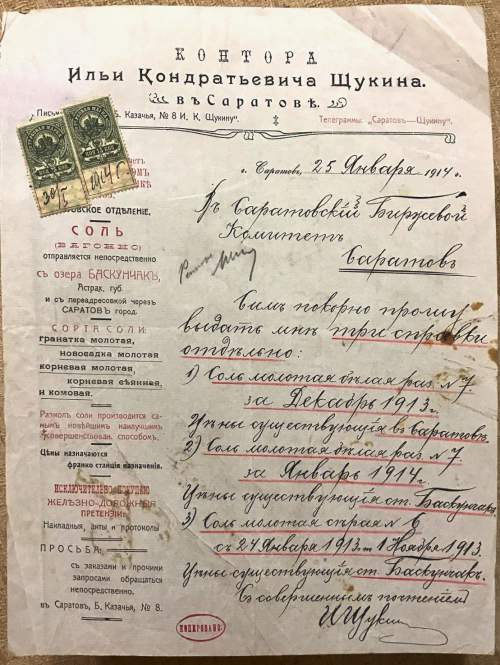 КОНТОРА
Ильи Кондратьевича Щукина.
въ Саратовѣ.
Б. Казачья, № 8 И. К. Щукину"
Телеграммы: „Саратовъ—Щукину"
г. Саратовъ, 25 Января 1914 г.
30/I
1914 г
Въ Саратовскій Биржевой
Комитетъ
Саратовъ
ОТДѢЛЕНІЕ.
СОЛЬ
(ВАГОННО)
отправляется непосредственно
съ озера БАСКУНЧАКЪ,
Астрах. губ.
и съ переадресовкой черезъ
САРАТОВЪ город.
СОРТА СОЛИ:
гранатка молотая,
новосадка молотая
корневая молотая,
корневая сѣянная,
и комовая.
Размолъ соли производится са-
мымъ новѣйшимъ наилучшимъ
усовершенствован. способомъ.
Цѣны назначаются
франко станція назначенія.
ИСКЛЮЧИТЕЛЬНО ПОКУПАЮ
ЖЕЛѢЗНО-ДОРОЖНЫЯ
ПРЕТЕНЗІИ
Накладныя, акты и протоколы
ПРОСЬБА:
съ заказами и прочими
запросами обращаться
непосредственно.
въ Саратовъ, Б. Казачья, № 8.
Симъ покорно прошу
выдать мнѣ три справки
отдѣльно:
1) Соль молотая бѣлая раз. № 7
за Декабрь 1913 г.
Цѣны существующія въ Саратовѣ.
2) Соль молотая бѣлая раз. № 7
за Январь 1914 г.
Цѣны существующія ст. Баскунчакъ
3) Соль молотая сѣрая № 6
съ 24 Января 1913 г. по 1 Ноября 1913.
Цѣны существующія ст. Баскунчакъ.
Съ совершеннымъ почтеніемъ
И Щукин
КОПИРОВАНО